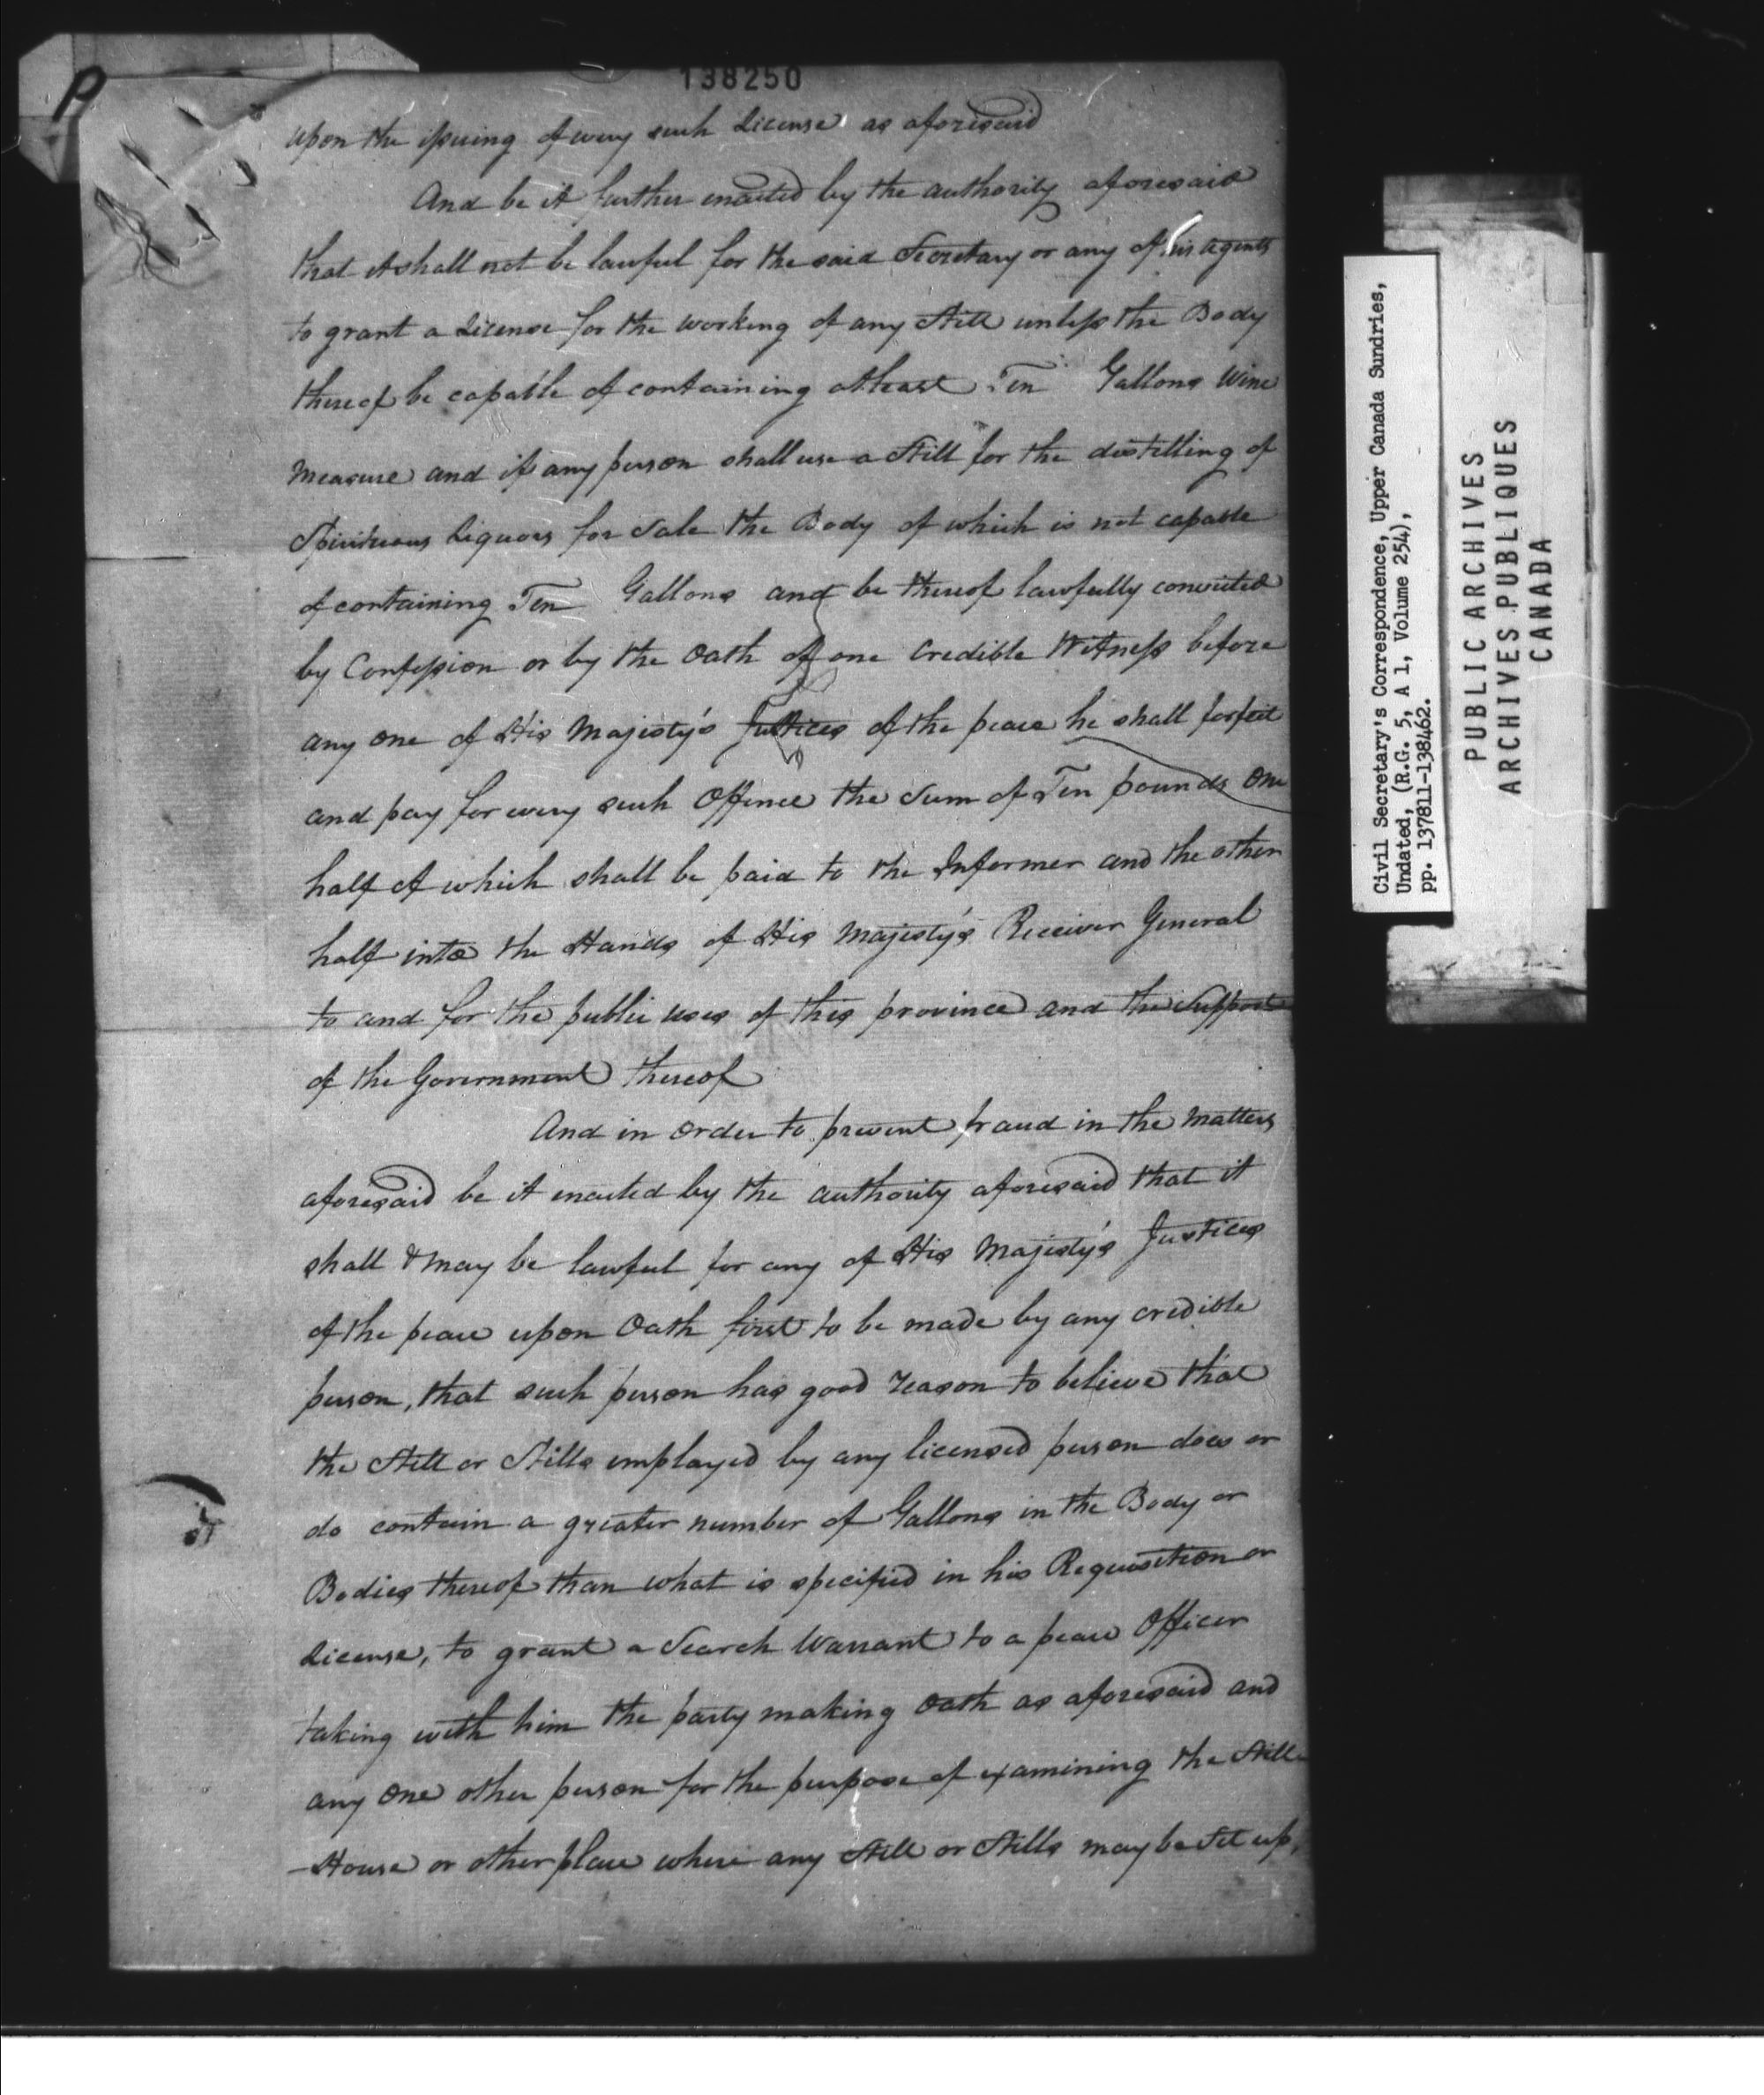 138250
P
upon the issuing of every such License as aforesaid
And be it further enacted by the authority aforesaid
that it shall not be lawful for the said Secretary or any of his agents
to grant a License for the working of any Still unless the Body
thereof be capable of containing at least Ten Gallons Wine
Measure and if any person shall use a Still for the distilling of
Spirituous liquors for Sale the Body of which is not capable
of containing Ten Gallons and be thereof lawfully convicted
by Confession or by the Oath of one Credible Witness before
any one of His Majesty's Justices of the peace he shall forfeit
and pay for every such Offence the Sum of Ten pounds One
half of which shall be paid to the Informer and the other
half into the Hands of His Majesty's Receiver General
to and for the public uses of this province and the Support
of the Government thereof
And in order to prevent fraud in the matters
aforesaid be it enacted by the authority aforesaid that it
shall & may be lawful for any of His Majesty's Justices
of the peace upon Oath first to be made by any credible
person, that such person has good reason to believe that
the Still or Stills employed by any licensed person does or
do contain a greater number of Gallons in the Body or
Bodies thereof than what is specified in his Requisition or
License, to grant a Search Warrant to a peace Officer
taking with him the party making Oath as aforesaid and
any one other person for the purpose of examining the Still
House or other place where any Still or Stills may be Set up,
Civil Secretary's Correspondence, Upper Canada Sundries,
Undated, (R.G. 5, A 1, Volume 254),
pp. 137811-138462.
PUBLIC ARCHIVES
ARCHIVES PUBLIQUES
CANADA